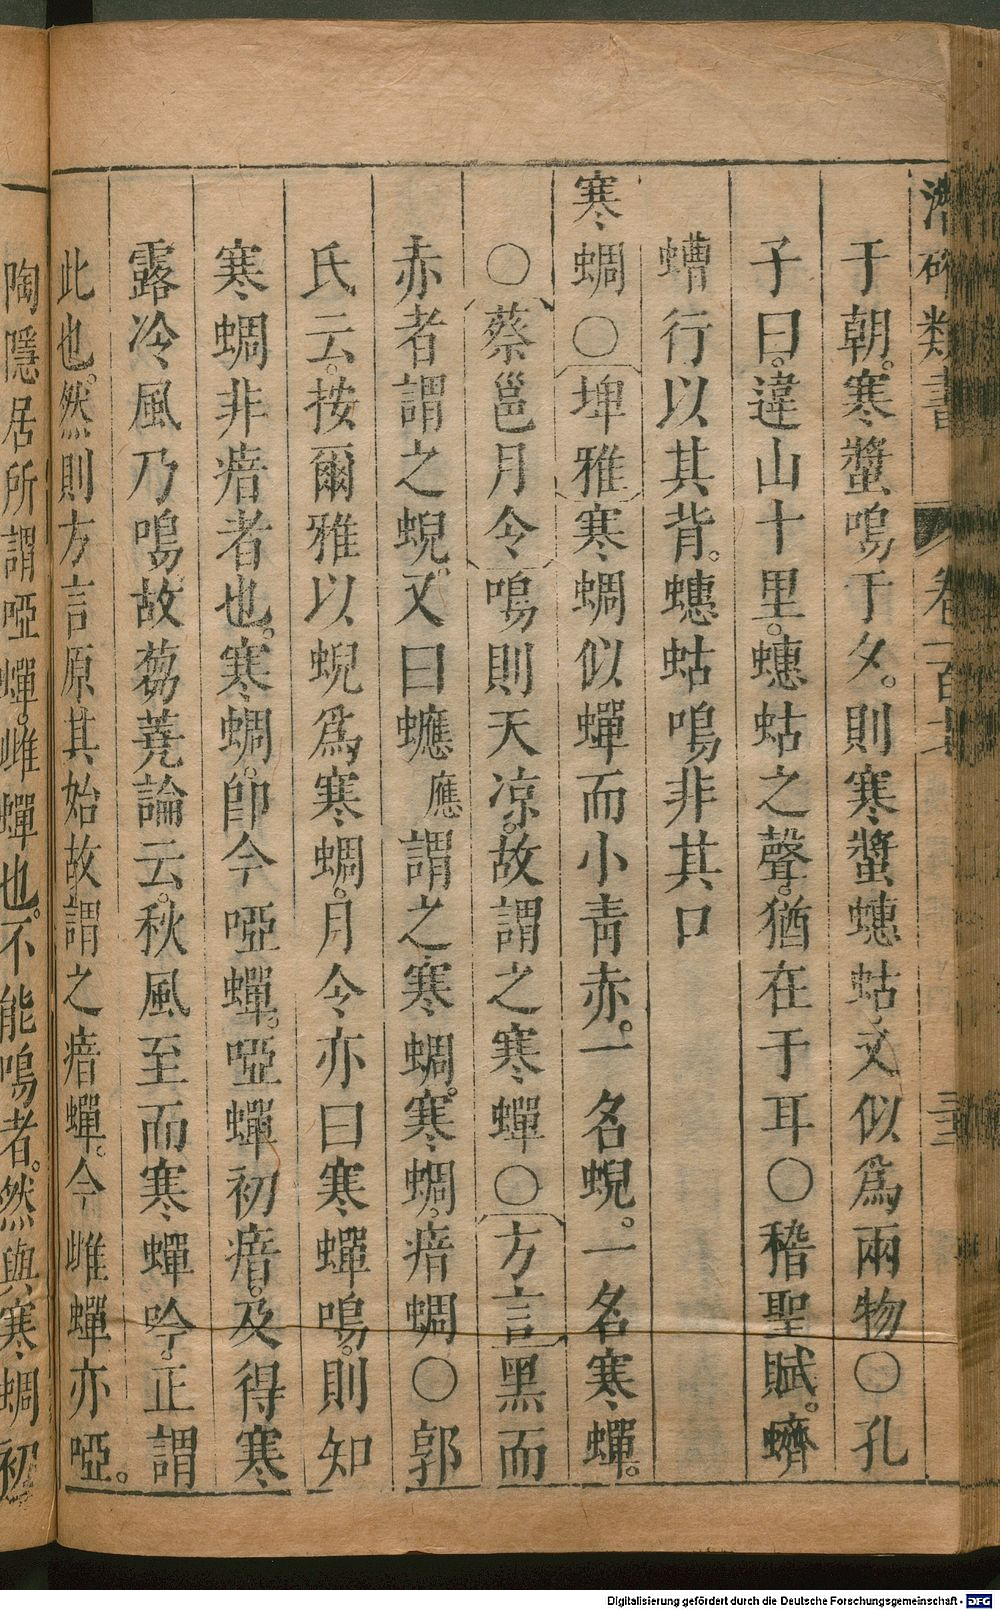 潛確類書 卷一百 三十三
于朝。寒螿鳴于夕。則寒螿蟪蛄又似爲兩物○孔
子曰。違山十里。蟪蛄之聲。猶在于耳○稽聖賦。蠐
螬行以其背。蟪蛄鳴非其口
寒蜩○埤雅寒蜩似蟬而小青赤。一名蜺。一名寒蟬。
○蔡邕月令鳴則天凉。故謂之寒蟬○方言黑而
赤者謂之蜺。又曰蟅應謂之寒蜩。寒蜩。瘖蜩○郭
氏云。按爾雅以蜺爲寒蜩。月令亦曰寒蟬鳴。則知
寒蜩非瘖者也。寒蜩。卽今啞蟬。啞蟬初瘖。及得寒
露冷風乃鳴故芻蕘論云。秋風至而寒蟬吟。正謂
此也。然則方言原其始故謂之瘖蟬。今雌蟬亦啞。
陶隱居所謂啞蟬。雌蟬也。不能鳴者。然與寒蜩初
Digitalisierung gefördert durch die Deutsche Forschungsgemeinschaft - DFG